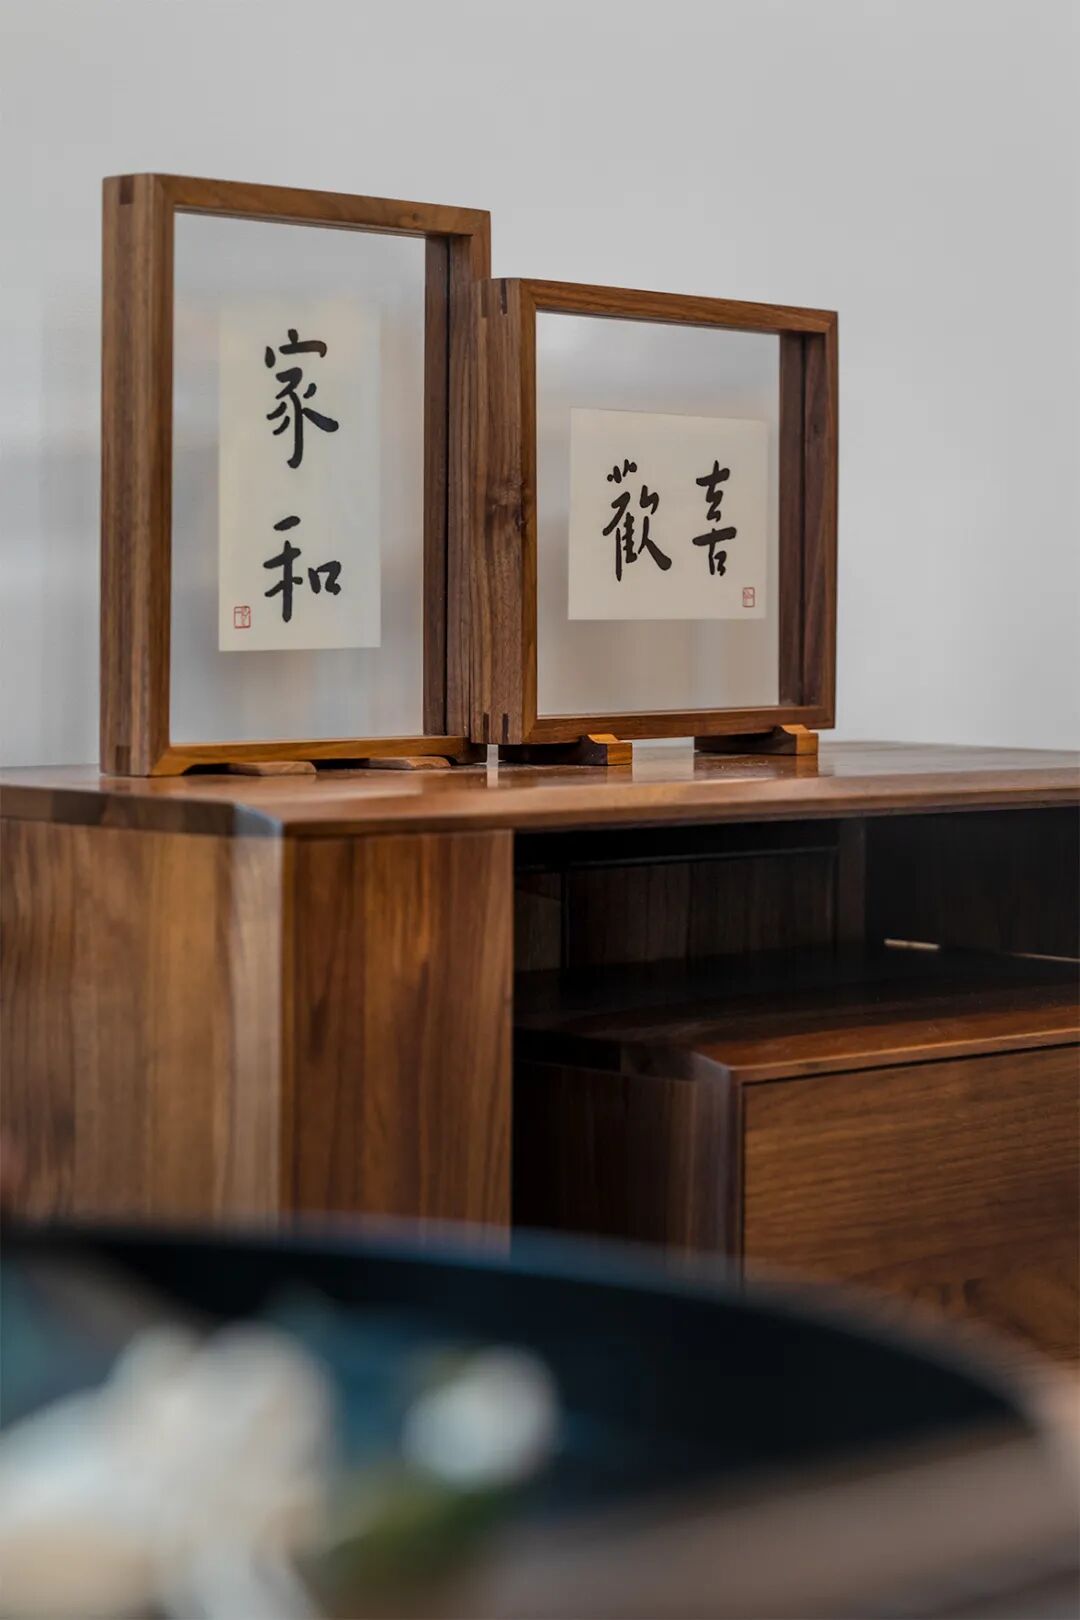 家和
喜歡